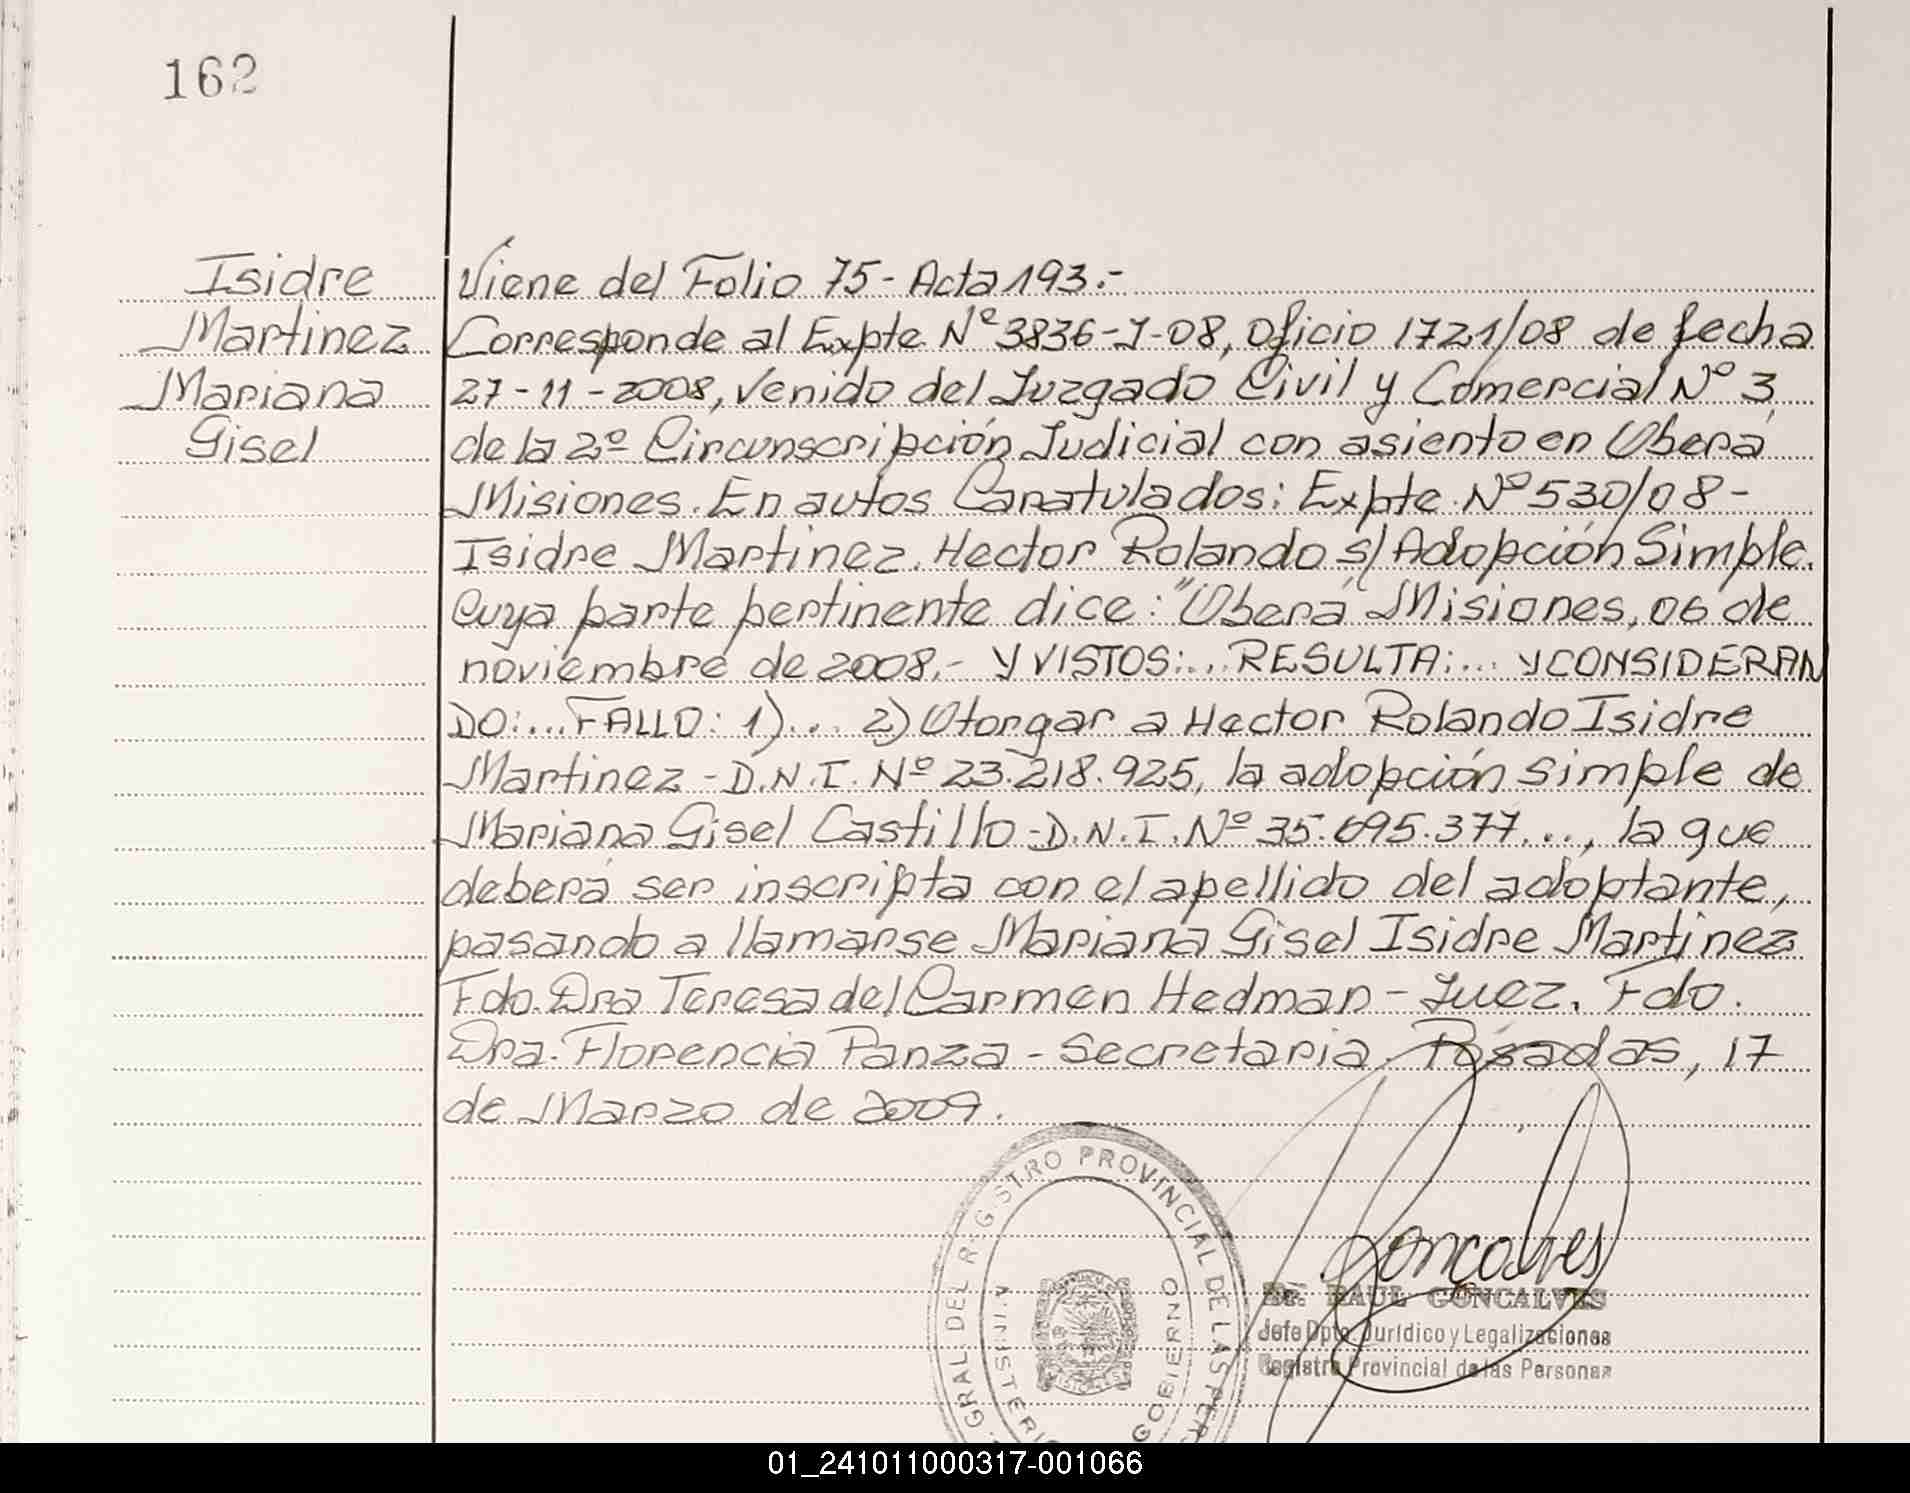 162
Isidre
Martinez
Mariana
Gisel
Viene del Folio 75 - Acta 193.-
Corresponde al Expte Nº 3836-J-08, oficio 1721/08 de fecha
27-11-2008, venido del Juzgado Civil y Comercial Nº 3,
de la 2º Circunscripción Judicial con asiento en Oberá
Misiones. En autos Caratulados: Expte Nº 530/08 -
Isidre Martinez, Hector Rolando s/Adopción Simple.
Cuya parte pertinente dice: "Oberá, Misiones, 06 de
noviembre de 2008.- Y VISTOS:... RESULTA:... Y CONSIDERAN
DO:... FALLO: 1)... 2) Otorgar a Hector Rolando Isidre
Martinez - D.N.I. Nº 23.218.925, la adopción simple de
Mariana Gisel Castillo - D.N.I. Nº 35.695.377..., la que
deberá ser inscripta con el apellido del adoptante,
pasando a llamarse Mariana Gisel Isidre Martinez
Fdo. Dra Teresa del Carmen Hedman - Juez. Fdo.
Dra. Florencia Panza - Secretaria. Posadas, 17
de Marzo de 2009.
GRAL. DEL REGISTRO PROVINCIAL DE LAS PER
MINISTERIO GOBIERNO
Goncalves
Dr. RAUL GONCALVES
Jefe Dpto. Jurídico y Legalizaciones
Registro Provincial de las Personas
01_241011000317-001066